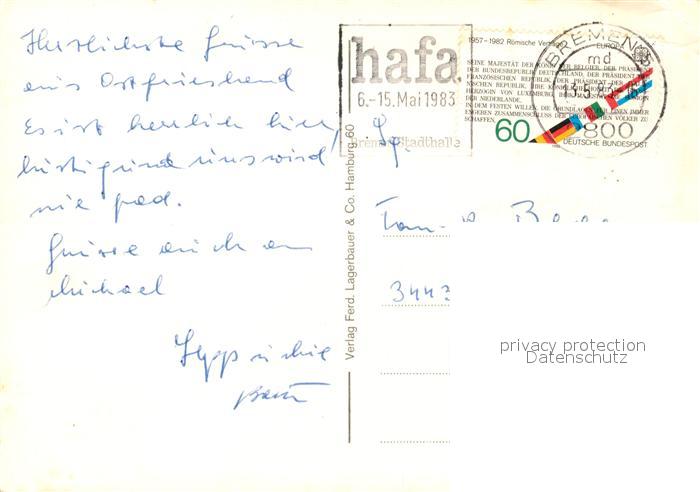 Herzlichste Grüsse
aus Ostfriesland
Es ist herrlich hier,
lustig und uns wird
nie fad.
Grüsse auch an
Michael
Sepp u.
hafa
6.–15. Mai 1983
Bremer Stadthalle
BREMEN
md
800
1957–1982 Römische Verträge
EUROPA
SEINE MAJESTÄT DER KÖNIG DER BELGIER, DER PRÄSIDENT
DER BUNDESREPUBLIK DEUTSCHLAND, DER PRÄSIDENT DER
FRANZÖSISCHEN REPUBLIK, DER PRÄSIDENT DER
NISCHEN REPUBLIK, IHRE KÖNIGLICHE
HERZOGIN VON LUXEMBURG, IHRE MAJESTÄT
DER NIEDERLANDE,
IN DEM FESTEN WILLEN, DIE GRUNDLAGEN FÜR EINEN IMMER
ENGEREN ZUSAMMENSCHLUSS DER EUROPÄISCHEN VÖLKER ZU
SCHAFFEN
60
DEUTSCHE BUNDESPOST
Verlag Ferd. Lagerbauer & Co. Hamburg 60
Fam.
3442
privacy protection
Datenschutz